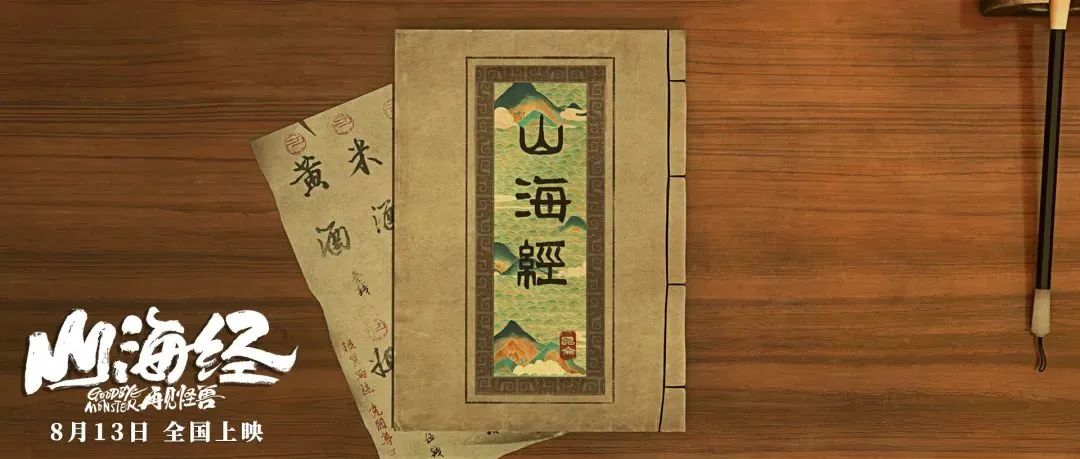 山海經
昆侖
黄酒
米酒
叁钱
山海经
GOODBYE
MONSTER
再见怪兽
8月13日 全国上映